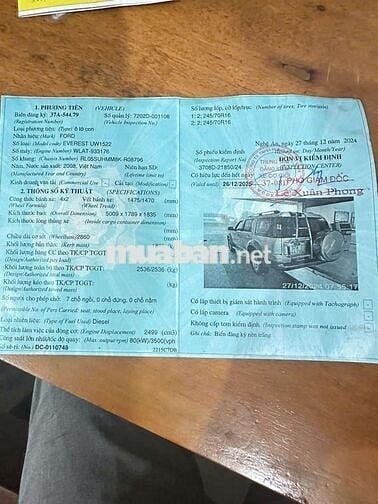 1. PHƯƠNG TIỆN (VEHICLE)
Biển đăng ký: 37A-544.79 Số quản lý: 7202D-001108
(Registration Number) (Vehicle Inspection No.)
Loại phương tiện: (Type) ô tô con
Nhãn hiệu: (Mark) FORD
Số loại: (Model code) EVEREST UW1522
Số máy: (Engine Number) WLAT-933176
Số khung: (Chassis Number)
Năm, Nước sản xuất: 2008, Việt Nam Niên hạn SD:
(Manufactured Year and Country) (Lifetime limit to)
Kinh doanh vận tải (Commercial Use) Cải tạo (Modification)
2. THÔNG SỐ KỸ THUẬT (SPECIFICATIONS)
Công thức bánh xe: 4x2 Vết bánh xe: 1475/1470 (mm)
(Wheel Formula) (Wheel Tread)
Kích thước bao: (Overall Dimension) 5009 x 1789 x 1835 (mm)
Kích thước lòng thùng xe: (mm)
(Inside cargo container dimension)
Chiều dài cơ sở: (Wheelbase) 2860
Khối lượng bản thân: (Kerb mass)
Khối lượng hàng CC theo TK/CP TGGT:
(Design/Authorized pay load)
Khối lượng toàn bộ theo TK/CP TGGT: 2536/2536 (kg)
(Design/Authorized total mass)
Khối lượng kéo theo TK/CP TGGT: (kg)
(Design/Authorized towed mass)
Số người cho phép chở: 7 chỗ ngồi, 0 chỗ đứng, 0 chỗ nằm
(Permissible No. of Pers Carried: seat, stood place, laying place)
Loại nhiên liệu: (Type of Fuel Used) Diesel
Thể tích làm việc của động cơ: (Engine Displacement) 2499 (cm3)
Công suất lớn nhất/tốc độ quay: (Max. output/rpm) 80(kW)/3500vph
Số sê-ri: (No.) DC-0110748
Số lượng lốp, cỡ lốp/trục: (Number of tires; Tire size/axle)
1: 2; 245/70R16
2: 2; 245/70R16
Số phiếu kiểm định
(Inspection Report No)
3708D-21850/24
Có hiệu lực đến hết ngày
(Valid until) 26/12/2025
Nghệ An, ngày 27 tháng 12 năm 2024
(Issued on: Day/Month/Year)
ĐƠN VỊ KIỂM ĐỊNH
(INSPECTION CENTER)
PHÓ GIÁM ĐỐC
Lê Xuân Phong
muaban.net
27/12/2024
Có lắp thiết bị giám sát hành trình (Equipped with Tachograph)
Có lắp camera (Equipped with camera)
Không cấp tem kiểm định (Inspection stamp was not issued)
Ghi chú: Biển đăng ký nền trắng